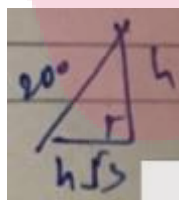 20° h
h√3